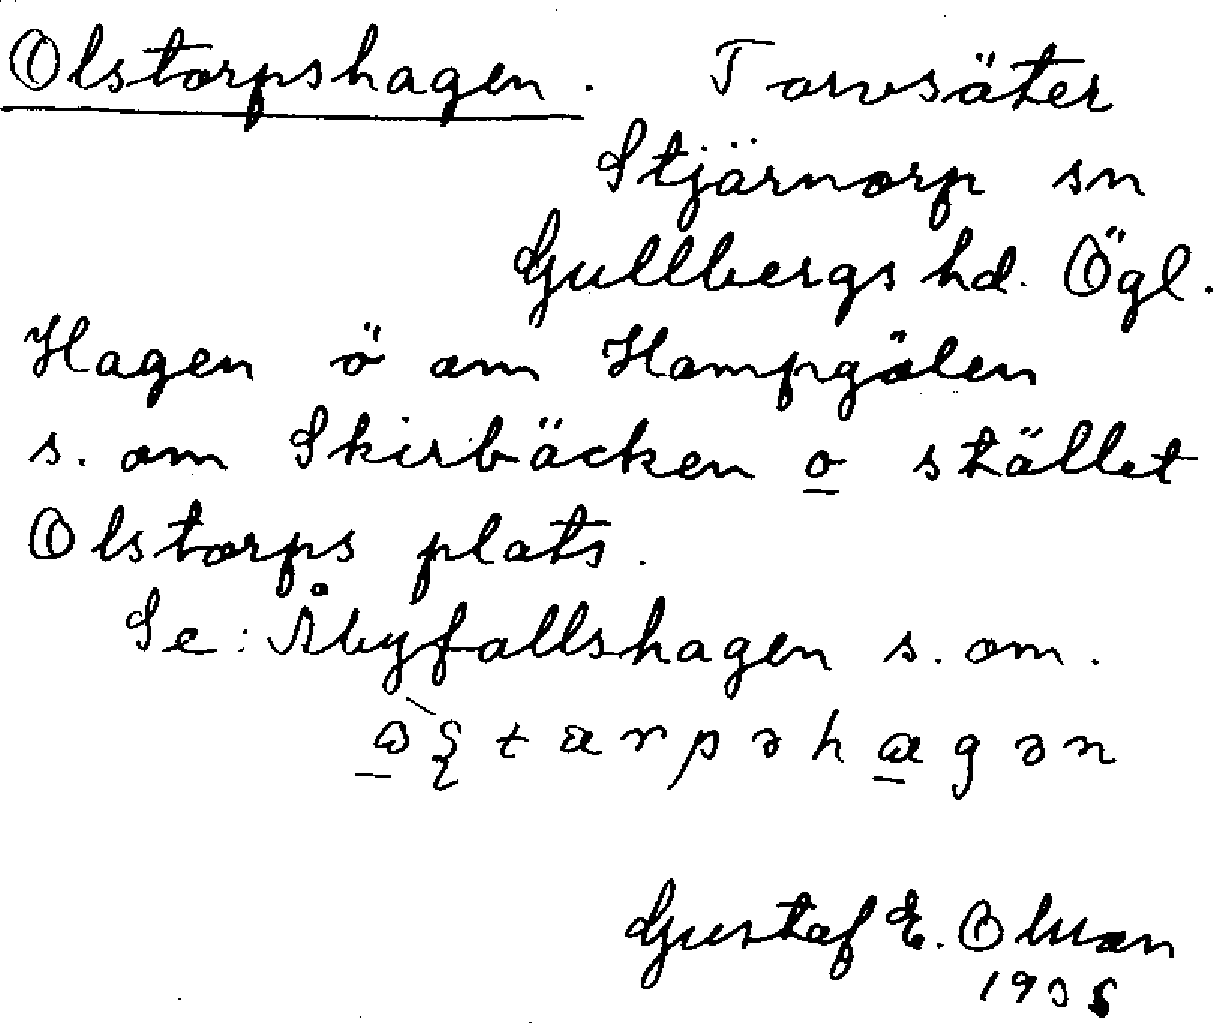 Olstorpshagen. Torvsäter
Stjärnorp sn
Gullbergs hd. Ögl.
Hagen ö om Hampgölen
s. om Skirbäcken o stället
Olstorps plats.
Se: Åbyfallshagen s. om.
Gustaf E. Olsson